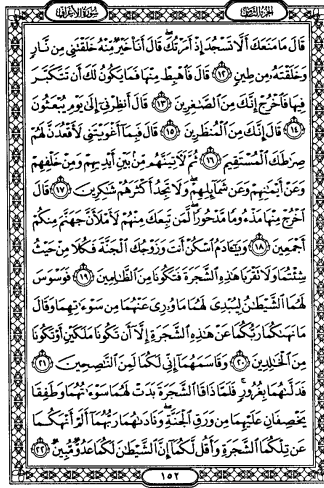 سورة الأعراف الجزء الثامن
قَالَ مَا مَنَعَكَ أَلَّا تَسْجُدَ إِذْ أَمَرْتُكَ قَالَ أَنَا۠ خَيْرٌ مِّنْهُ خَلَقْتَنِى مِن نَّارٍ
وَخَلَقْتَهُۥ مِن طِينٍ ١٢ قَالَ فَٱهْبِطْ مِنْهَا فَمَا يَكُونُ لَكَ أَن تَتَكَبَّرَ
فِيهَا فَٱخْرُجْ إِنَّكَ مِنَ ٱلصَّـٰغِرِينَ ١٣ قَالَ أَنظِرْنِىٓ إِلَىٰ يَوْمِ يُبْعَثُونَ
١٤ قَالَ إِنَّكَ مِنَ ٱلْمُنظَرِينَ ١٥ قَالَ فَبِمَآ أَغْوَيْتَنِى لَأَقْعُدَنَّ لَهُمْ
صِرَٰطَكَ ٱلْمُسْتَقِيمَ ١٦ ثُمَّ لَـَٔاتِيَنَّهُم مِّنۢ بَيْنِ أَيْدِيهِمْ وَمِنْ خَلْفِهِمْ
وَعَنْ أَيْمَـٰنِهِمْ وَعَن شَمَآئِلِهِمْ وَلَا تَجِدُ أَكْثَرَهُمْ شَـٰكِرِينَ ١٧ قَالَ
ٱخْرُجْ مِنْهَا مَذْءُومًا مَّدْحُورًا لَّمَن تَبِعَكَ مِنْهُمْ لَأَمْلَأَنَّ جَهَنَّمَ مِنكُمْ
أَجْمَعِينَ ١٨ وَيَـٰٓـَٔادَمُ ٱسْكُنْ أَنتَ وَزَوْجُكَ ٱلْجَنَّةَ فَكُلَا مِنْ حَيْثُ
شِئْتُمَا وَلَا تَقْرَبَا هَـٰذِهِ ٱلشَّجَرَةَ فَتَكُونَا مِنَ ٱلظَّـٰلِمِينَ ١٩ فَوَسْوَسَ
لَهُمَا ٱلشَّيْطَـٰنُ لِيُبْدِىَ لَهُمَا مَا وُۥرِىَ عَنْهُمَا مِن سَوْءَٰتِهِمَا وَقَالَ
مَا نَهَىٰكُمَا رَبُّكُمَا عَنْ هَـٰذِهِ ٱلشَّجَرَةِ إِلَّآ أَن تَكُونَا مَلَكَيْنِ أَوْ تَكُونَا
مِنَ ٱلْخَـٰلِدِينَ ٢٠ وَقَاسَمَهُمَآ إِنِّى لَكُمَا لَمِنَ ٱلنَّـٰصِحِينَ ٢١
فَدَلَّىٰهُمَا بِغُرُورٍ فَلَمَّا ذَاقَا ٱلشَّجَرَةَ بَدَتْ لَهُمَا سَوْءَٰتُهُمَا وَطَفِقَا
يَخْصِفَانِ عَلَيْهِمَا مِن وَرَقِ ٱلْجَنَّةِ وَنَادَىٰهُمَا رَبُّهُمَآ أَلَمْ أَنْهَكُمَا
عَن تِلْكُمَا ٱلشَّجَرَةِ وَأَقُل لَّكُمَآ إِنَّ ٱلشَّيْطَـٰنَ لَكُمَا عَدُوٌّ مُّبِينٌ ٢٢
١٥٢